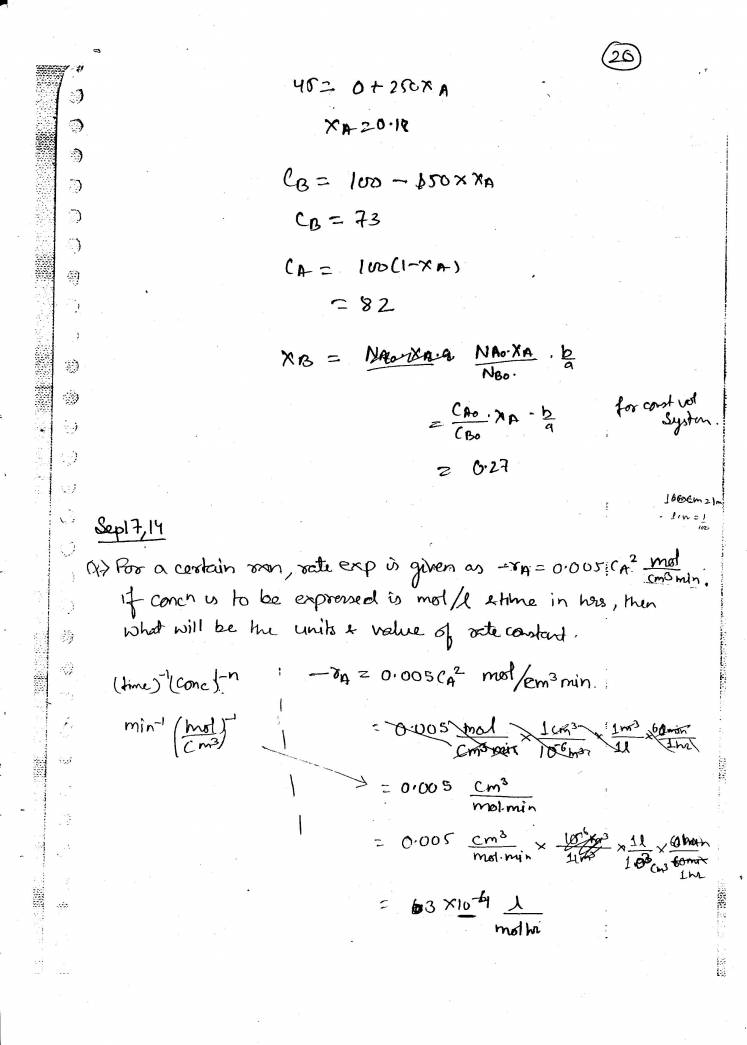 20
45 = 0 + 250 x A
XA = 0.18
CB = 100 - 150 x XA
CB = 73
CA = 100 (1-XA)
= 82
XB = NAo.XA / NBo . b/a
= CAo/CBo . XA . b/a for const vol system.
= 0.27
100cm = 1m
Sep 17, 14
Q> For a certain rxn, rate exp is given as -rA = 0.005 CA² mol/cm³ min.
if concn is to be expressed is mol/l & time in hrs, then
what will be the units & value of rate constant.
(time)⁻¹ (conc)¹⁻ⁿ : -rA = 0.005 CA² mol/cm³ min.
min⁻¹ (mol/cm³)⁻¹
= 0.005 mol/cm³ min x 1cm³/10⁻⁶m³ x 1m³/1l x 60min/1hr
= 0.005 cm³/mol.min
= 0.005 cm³/mol.min x 1l/10³cm³ x 60min/1hr
= 3 x 10⁻⁴ l/mol hr